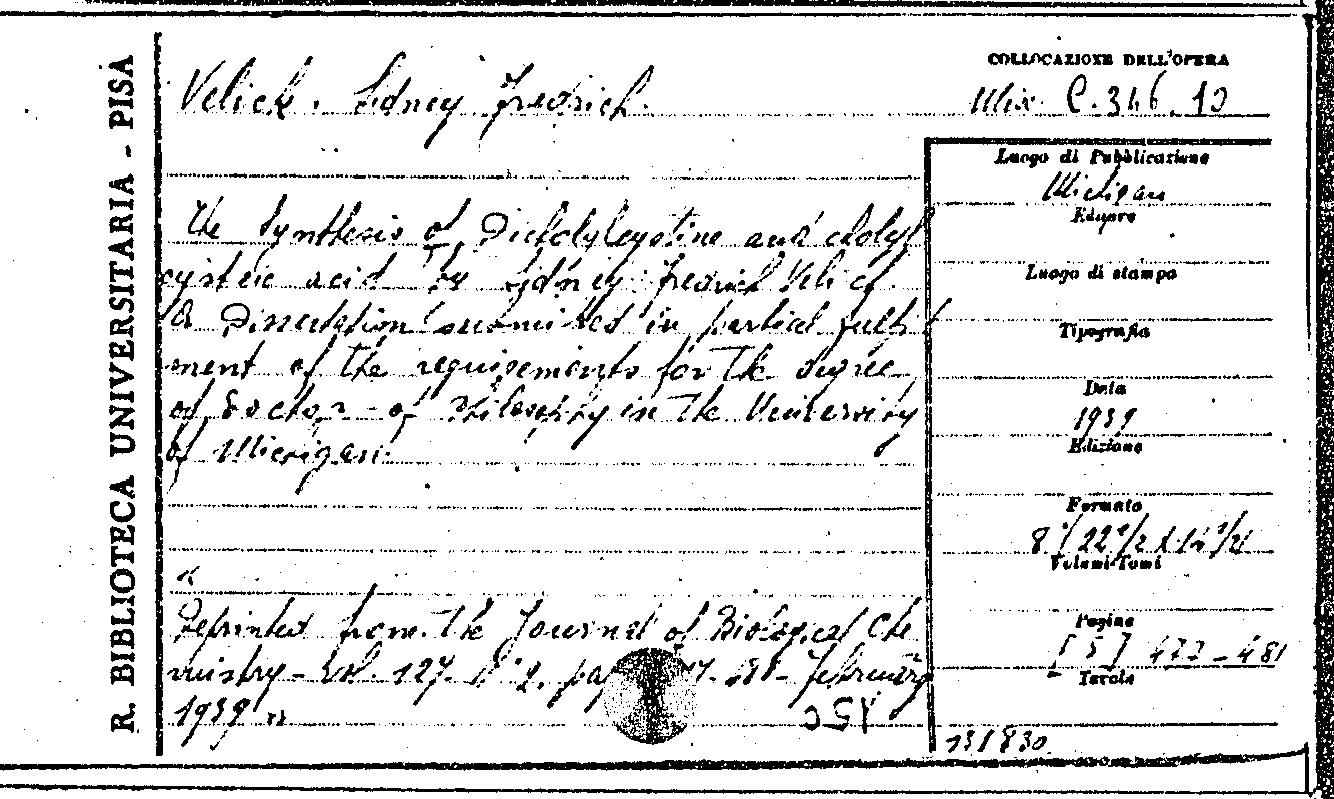 R. BIBLIOTECA UNIVERSITARIA - PISA
Velick. Sidney Fredrich.
COLLOCAZIONE DELL'OPERA
Mix. C. 346. 10
The Synthesis of Dicholylcystine and cholyl
cysteic acid by Sidney Fredrich Velick
A Dissertation submitted in partial fulfil
ment of the requirements for the degree
of Doctor of Philosophy in the University
of Michigan.
"
Reprinted from the Journal of Biological Che
mistry - vol. 127. N° 2. February
1939 "
ASC
Luogo di Pubblicazione
Michigan
Editore
Luogo di stampa
Tipografia
Data
1939
Edizione
Formato
8°/22 1/2 x 14 1/2
Volumi-Tomi
Pagine
[5] 477-481
Tavole
131830